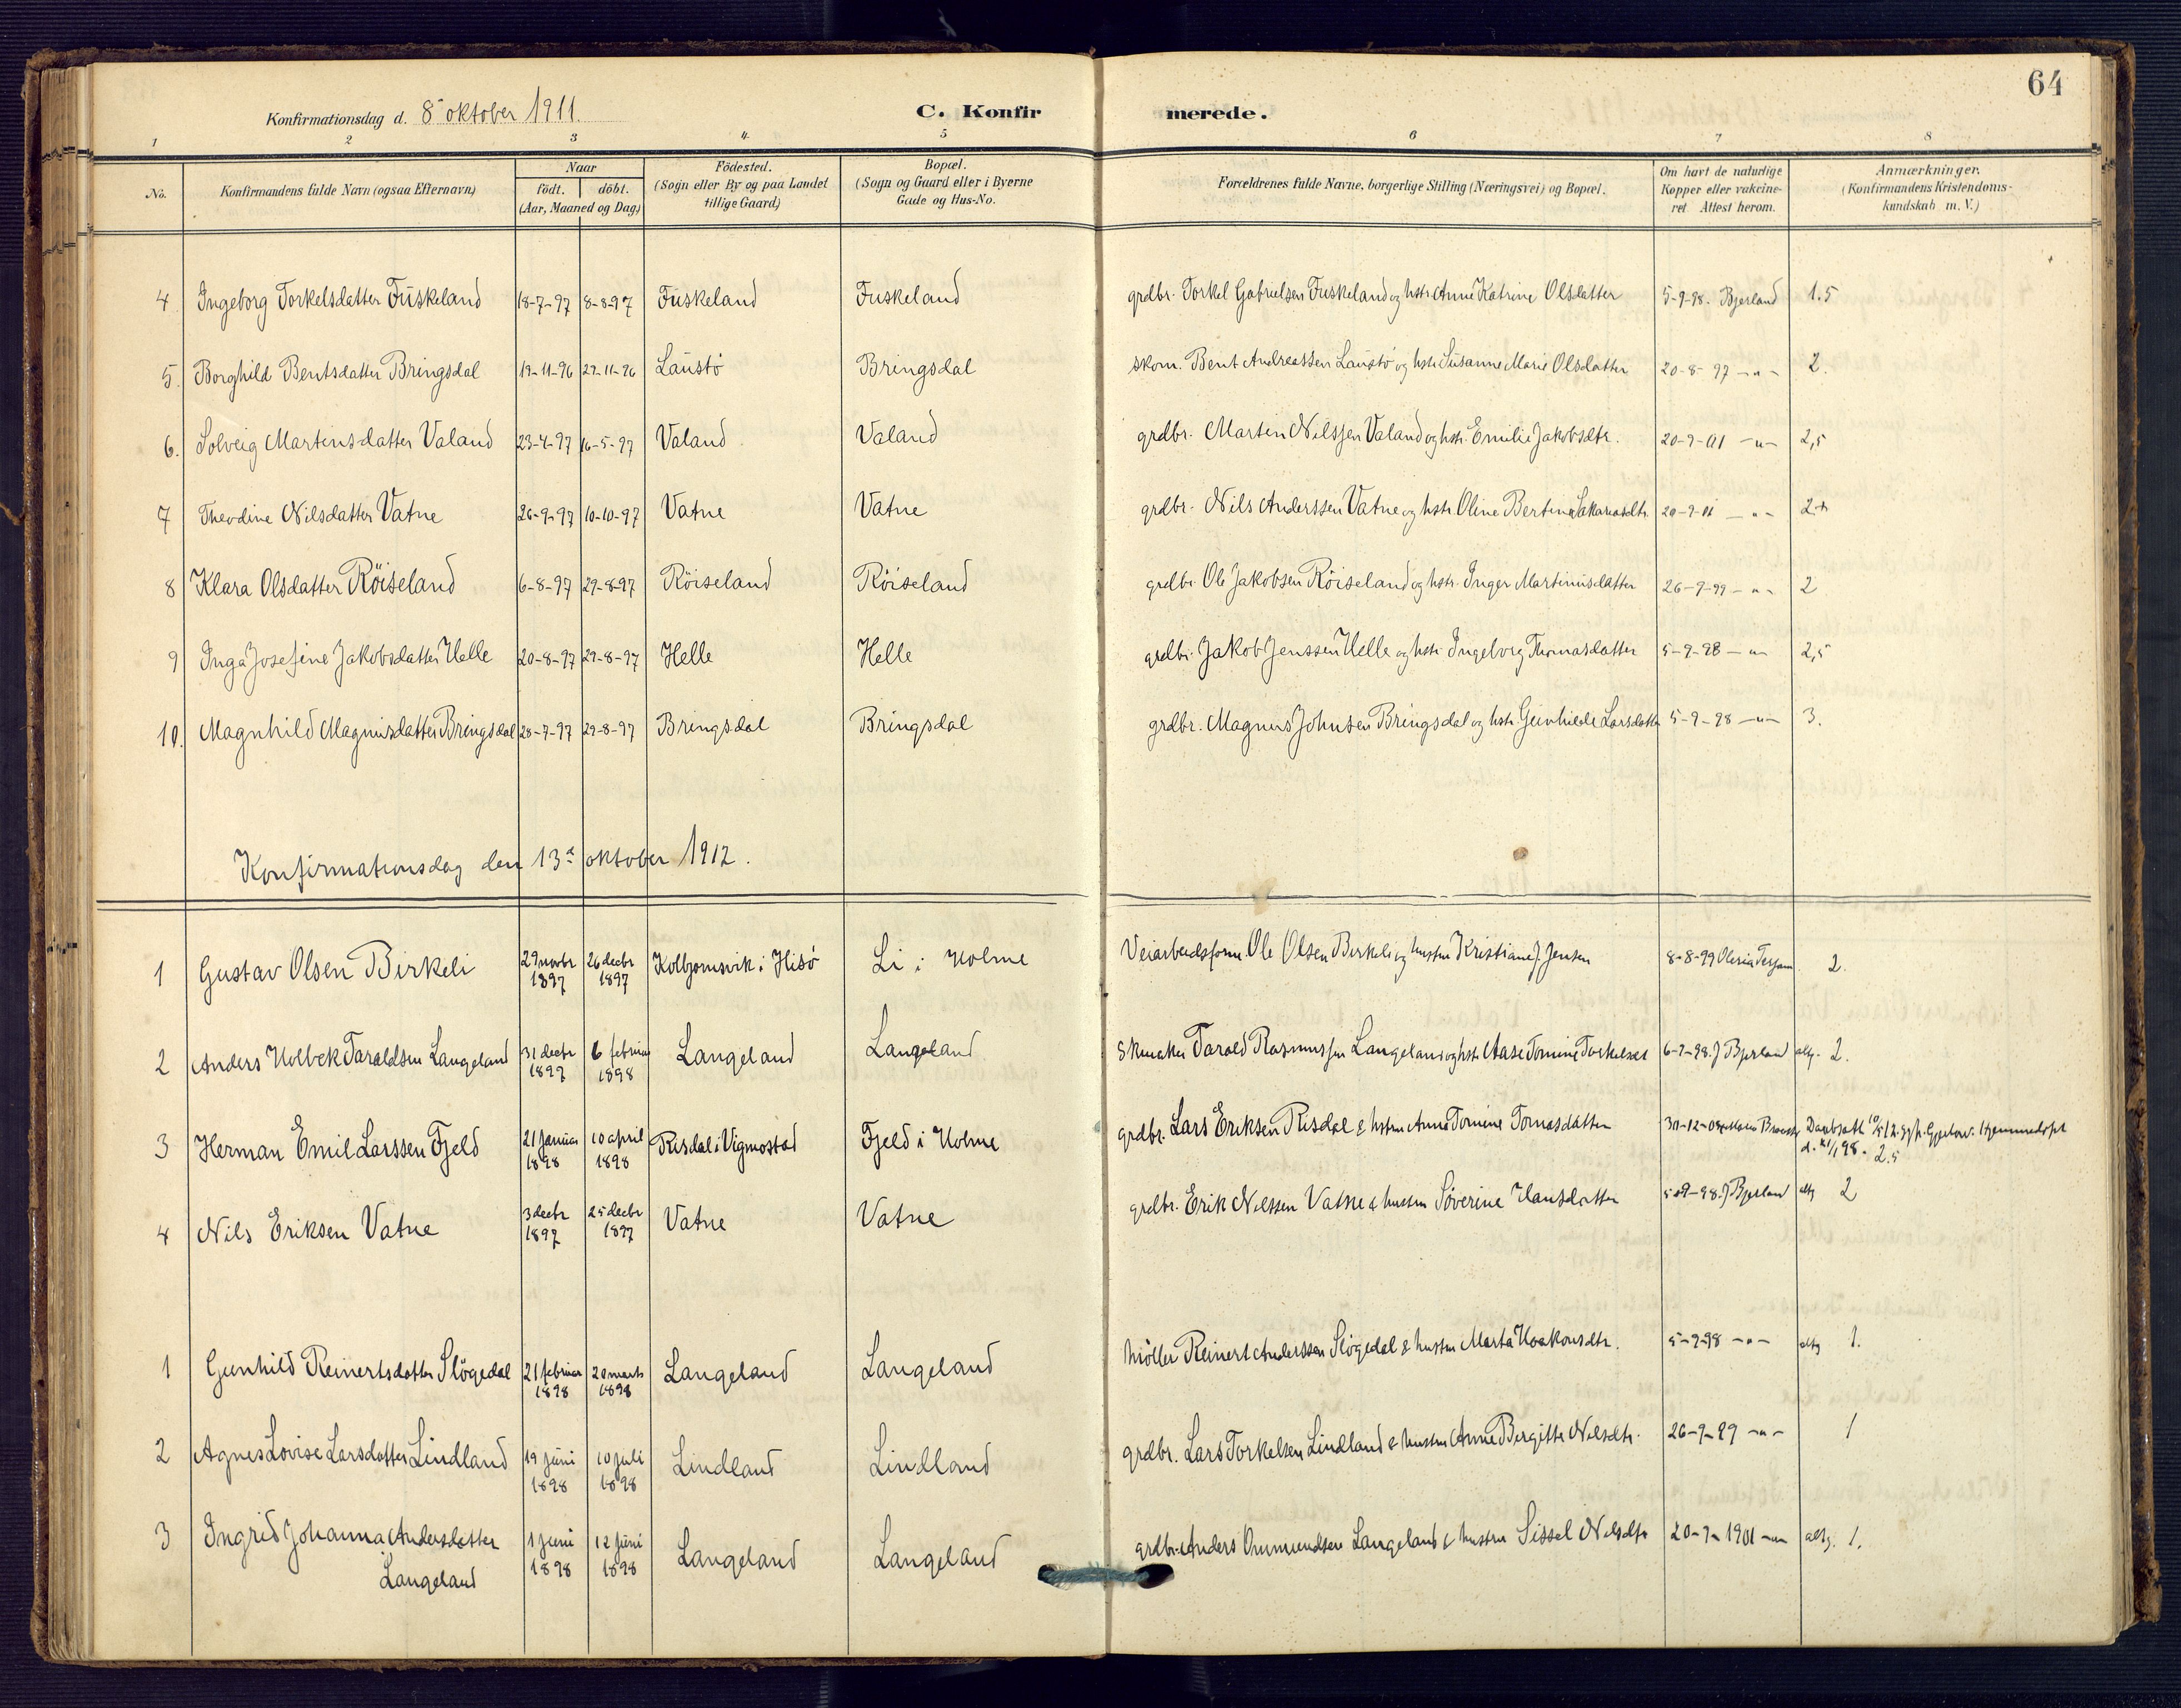 64
Konfirmationsdag d. 8 oktober 1911.
C. Konfirmerede.
1 2 3 4 5 6 7 8
No. Konfirmandens fulde Navn (ogsaa Efternavn) Naar födt. döbt. (Aar, Maaned og Dag) Födested. (Sogn eller By og paa Landet tillige Gaard) Bopæl. (Sogn og Gaard eller i Byerne Gade og Hus-No. Forældrenes fulde Navne, borgerlige Stilling (Næringsvei) og Bopæl. Om havt de naturlige Kopper eller vakcineret. Attest herom. Anmærkninger. (Konfirmandens Kristendomskundskab m. V.)
4 Ingeborg Torkelsdatter Fuskeland 18-7-97 8-8-97 Fuskeland Fuskeland grdbr. Torkel Gabrielsen Fuskeland og hstr. Anne Katrine Olsdatter 5-9-98 - Bjerland 1.5
5. Borghild Bentsdatter Bringsdal 19-11-96 29-11-96 Laustö Bringsdal skom. Bent Andreassen Laustö og hstr. Susanne Marie Olsdatter 20-8-97 -"- 2.
6. Solveig Martinsdatter Valand 23-4-97 16-5-97 Valand Valand grdbr. Martin Nilssen Valand og hstr. Emilie Jakobsdtr. 20-9-01 -"- 2,5
7 Theodine Nilsdatter Vatne 26-9-97 10-10-97 Vatne Vatne grdbr. Nils Anderssen Vatne og hstr. Oline Bertine Sakariasdtr. 20-9-01 -"- 2+
8 Klara Olsdatter Röiseland 6-8-97 29-8-97 Röiseland Röiseland grdbr. Ole Jakobsen Röiseland og hstr. Inger Martinusdatter 26-9-99 -"- 2
9 Inga Josefine Jakobsdatter Helle 20-8-97 29-8-97 Helle Helle grdbr. Jakob Jenssen Helle og hstr. Ingeborg Thomasdatter 5-9-98 -"- 2,5
10. Magnhild Magnusdatter Bringsdal 28-7-97 29-8-97 Bringsdal Bringsdal grdbr. Magnus Johnsen Bringsdal og hstr. Gunhilde Larsdatter 5-9-98 -"- 3.
Konfirmationsdag den 13de oktober 1912.
1 Gustav Olsen Birkeli 29 novbr 1897 26 decbr 1897 Kolbjornsvik i Hisö Li i Holme Veiarbeidsform. Ole Olsen Birkeli og hustru Kristiane J. Jensen 8-8-99 2.
2 Anders Holbek Taraldsen Langeland 31 decbr 1897 6 februar 1898 Langeland Langeland Skomaker Tarald Rasmussen Langeland og hstr. Aase Tomine Torkelsdtr 6-9-98. J Bjerland altg. 2.
3 Herman Emil Larssen Fjeld 21 januar 1898 10 april 1898 Risdal i Vigmostad Fjeld i Holme grdbr. Lars Eriksen Risdal & hustru Anne Tomine Tomasdatter 30-12-08 Hjemmedöpt d. 21/1 98. 2.5
4 Nils Eriksen Vatne 3 decbr 1897 25 decbr 1897 Vatne Vatne grdbr. Erik Nilssen Vatne & hustru Söverine Hansdatter 5-9-98. J Bjerland altg 2
1 Gunhild Reinertsdatter Slögedal 21 februar 1898 20 marts 1898 Langeland Langeland Möller Reinert Anderssen Slögedal & hustru Marta Haakonsdtr. 5-9-98 -"- altg 1.
2 Agnes Lovise Larsdatter Lindland 19 juni 1898 10 juli 1898 Lindland Lindland grdbr. Lars Torkelsen Lindland & hustru Anne Birgitte Nilsdtr. 26-9-99 -"- 1
3 Ingrid Johanna Andersdatter Langeland 1 juni 1898 12 juni 1898 Langeland Langeland grdbr. Anders Ommundsen Langeland & hustru Sissel Nilsdtr 20-9-1901 -"- altg. 1.